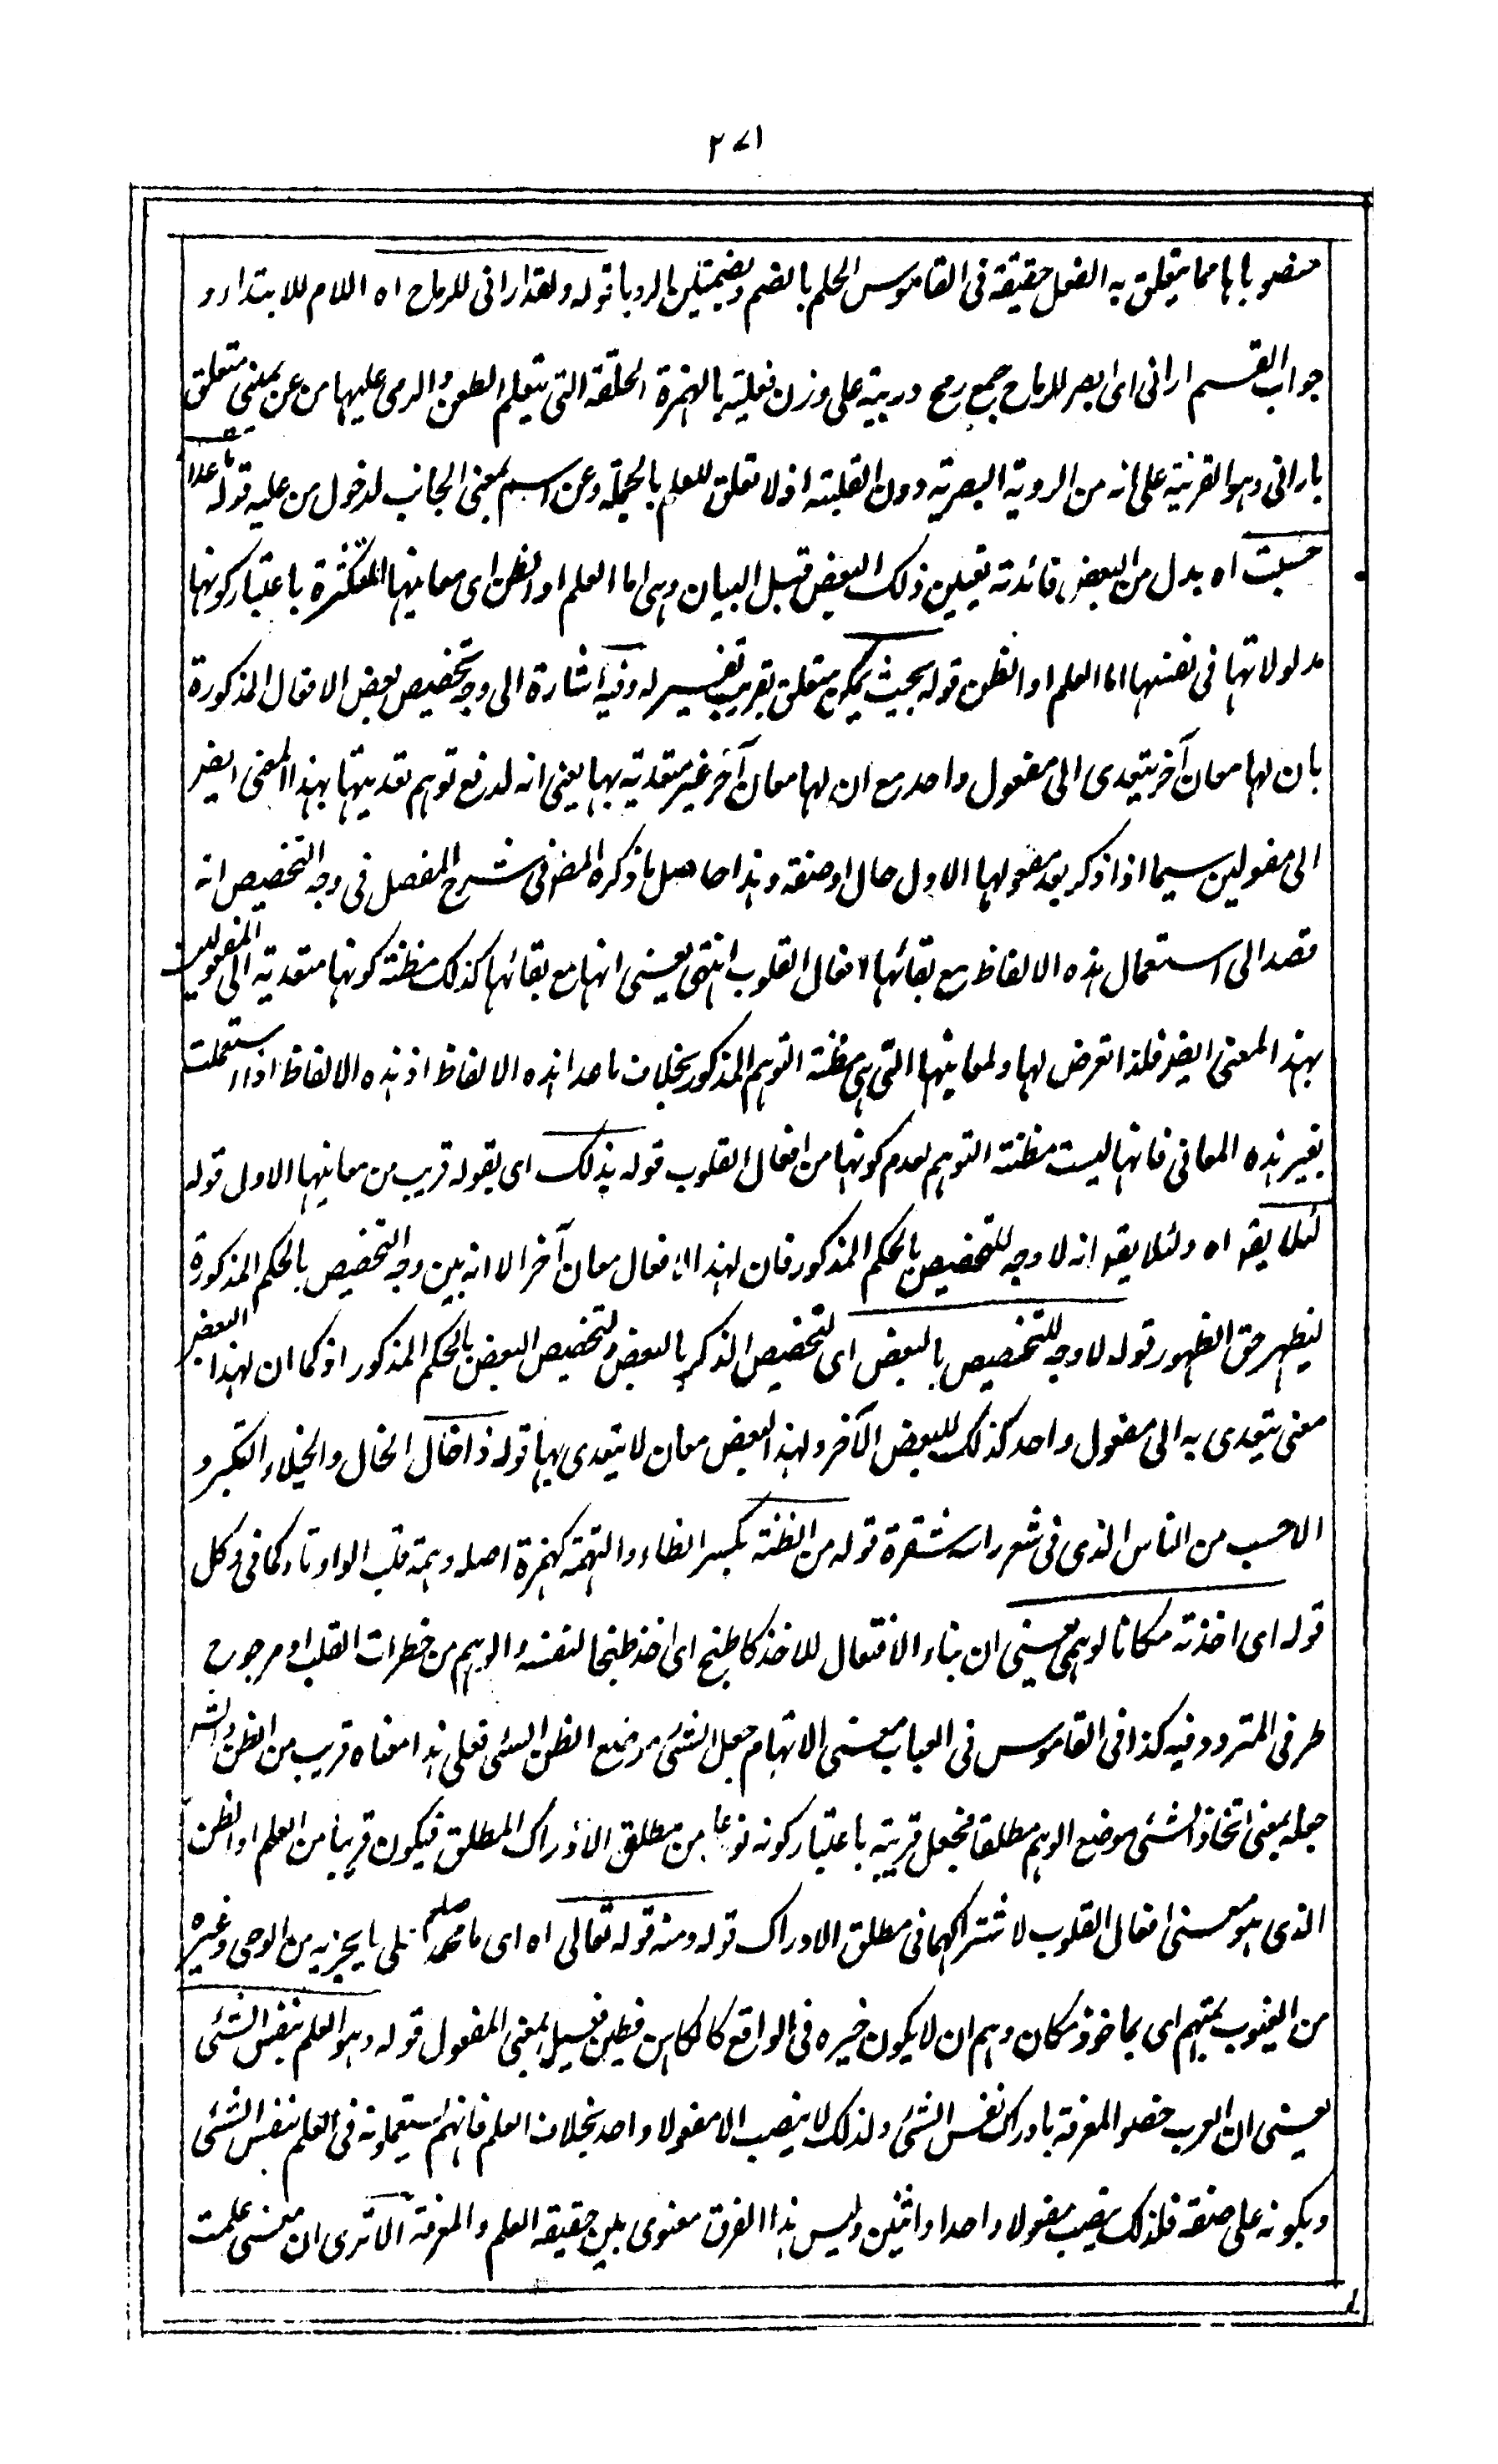 ٢٧١
منصوباها مما يتعلق به الفعل حقيقة فى القاموس الحلم بالضم وبضمتين الرويا قوله ولقد ارانى للرماح اه اللام للابتداء و
جواب القسم ارانى اى ابصر للرماح جمع رمح دريئة على وزن فعلية بالهمزة الحلقة التى يتعلم الطعن والرمى عليها من عن يمينى متعلق
بارانى وهو القرينة على انه من الروية البصرية دون القلبية اذ لا تعلق للعلم بالجملة وعن اسم بمعنى الجانب لدخول من عليه قوله ما عدا
حسبت اه بدل من البعض فائدته تعيين ذلك البعض قبل البيان وهى اما العلم او الظن اى معانيها المتكثرة باعتبار كونها
مدلولاتها فى نفسها اما العلم او الظن قوله بحيث يمكن متعلق بقريب تفسير له وفيه اشارة الى وجه تخصيص بعض الافعال المذكورة
بان لها معان آخر يتعدى الى مفعول واحد مع ان لها معان آخر غير متعدية بها يعنى انه لدفع توهم تعديتها بهذا المعنى ايضر
الى مفعولين سيما اذا ذكر بعد مفعولها الاول حال او صفة وهذا حاصل ما ذكره المض فى شرح المفصل فى وجه التخصيص انه
قصد الى استعمال هذه الالفاظ مع بقائها افعال القلوب انتهى يعنى انها مع بقائها كذلك مظنة كونها متعدية الى المفعولين
بهذا المعنى ايضر فلذا تعرض لها ولمعانيها التى هى مظنة التوهم المذكور بخلاف ما عدا هذه الالفاظ اذ هذه الالفاظ اذا استعملت
بغير هذه المعانى فانها ليست مظنة التوهم لعدم كونها من افعال القلوب قوله بذلك اى بقوله قريب من معانيها الاول قوله
لئلا يقو اه ولئلا يقو انه لا وجه للتخصيص بالحكم المذكور فان لهذا الافعال معان آخر الا انه بين وجه التخصيص بالحكم المذكورة
ليظهر حق الظهور قوله لا وجه للتخصيص بالبعض اى لتخصيص الذكر بالبعض ولتخصيص البعض بالحكم المذكور اذ كما ان لهذا البعض
معنى يتعدى به الى مفعول واحد كذلك للبعض الآخر ولهذا البعض معان لا يتعدى بها قوله ذا خال الخال والخيلاء التكبر و
الاحسب من الناس الذى فى شعر راسه شقرة قوله من الظنة بكسر الظاء والتهمة كهمزة اصله وهمة قلب الواو تاء كما فى وكل
قوله اى اخذته مكانا لوهمى يعنى ان بناء الافتعال للاخذ كاطبخ اى اخذ طبخا لنفسه والوهم من خطرات القلب او مرجوح
طرفى المتردد فيه كذا فى القاموس فى العباب معنى الاتهام جعل الشئ موضع الظن السئى فعلى هذا معناه قريب من الظن والشر
جعله بمعنى اتخاذ الشئى موضع الوهم مطلقا فجعل قريبه باعتبار كونه نوعا من مطلق الادراك المطلق فيكون قريبا من العلم او الظن
الذى هو معنى افعال القلوب لاشتراكهما فى مطلق الادراك قوله ومنه قوله تعالى اه اى ما محمد صلعم على ما يخبر به من الوحى وغيره
من الغيوب بمتهم اى بماخوذ مكان وهم ان لا يكون خبره فى الواقع كالكاهن فظنين فعيل بمعنى المفعول قوله وهو العلم بنفس الشئى
يعنى ان العرب خصوا المعرفة بادراك نفس الشئ ولذلك لا ينصب الا مفعولا واحدا بخلاف العلم فانهم استعملوه فى العلم بنفس الشئى
وبكونه على صفة فلذلك ينصب مفعولا واحدا واثنين وليس هذا الفرق معنوى بين حقيقة العلم والمعرفة الا ترى ان معنى علمت